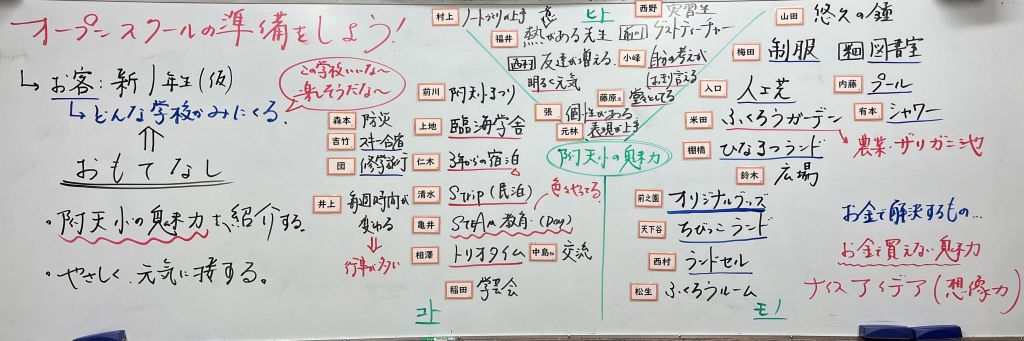 オープンスクールの準備をしよう！
↳お客：新1年生（仮）
↳どんな学校かみにくる。
この学校いいな〜
楽しそうだな〜
⇑
おもてなし
・附天小の魅力を紹介する。
・やさしく、元気に接する。
ヒト
村上 ノートづくり上手
福井 熱がある先生
西野 実習生
前川 ゲストティーチャー
西村 友達が増える。
明るく元気
小峰 自分の考えが
はっきり言える
藤原 堂々としてる
張 個性がある
元林 表現が上手
附天小の魅力
前川 附天小まつり
森本 防災
上地 臨海学舎
吉竹 スキー合宿
団 修学旅行
仁木 3年からの宿泊
井上 毎週時間が
変わる
⇓
行事が多い
清水 Strip（民泊）
色々やってる。
亀井 STEAM教育（Day）
相澤 トリオタイム
中島 交流
稲田 学芸会
コト
山田 悠久の鐘
梅田 制服
図書室
入口 人工芝
内藤 プール
有本 シャワー
米田 ふくろうガーデン
→農業・ザリガニ池
棚橋 ひなまつランド
鈴木 広場
前之園 オリジナルグッズ
天下谷 ちびっこランド
西村 ランドセル
松生 ふくろうルーム
モノ
お金で解決するもの…
お金で買えない魅力
ナイスアイデア（想像力）